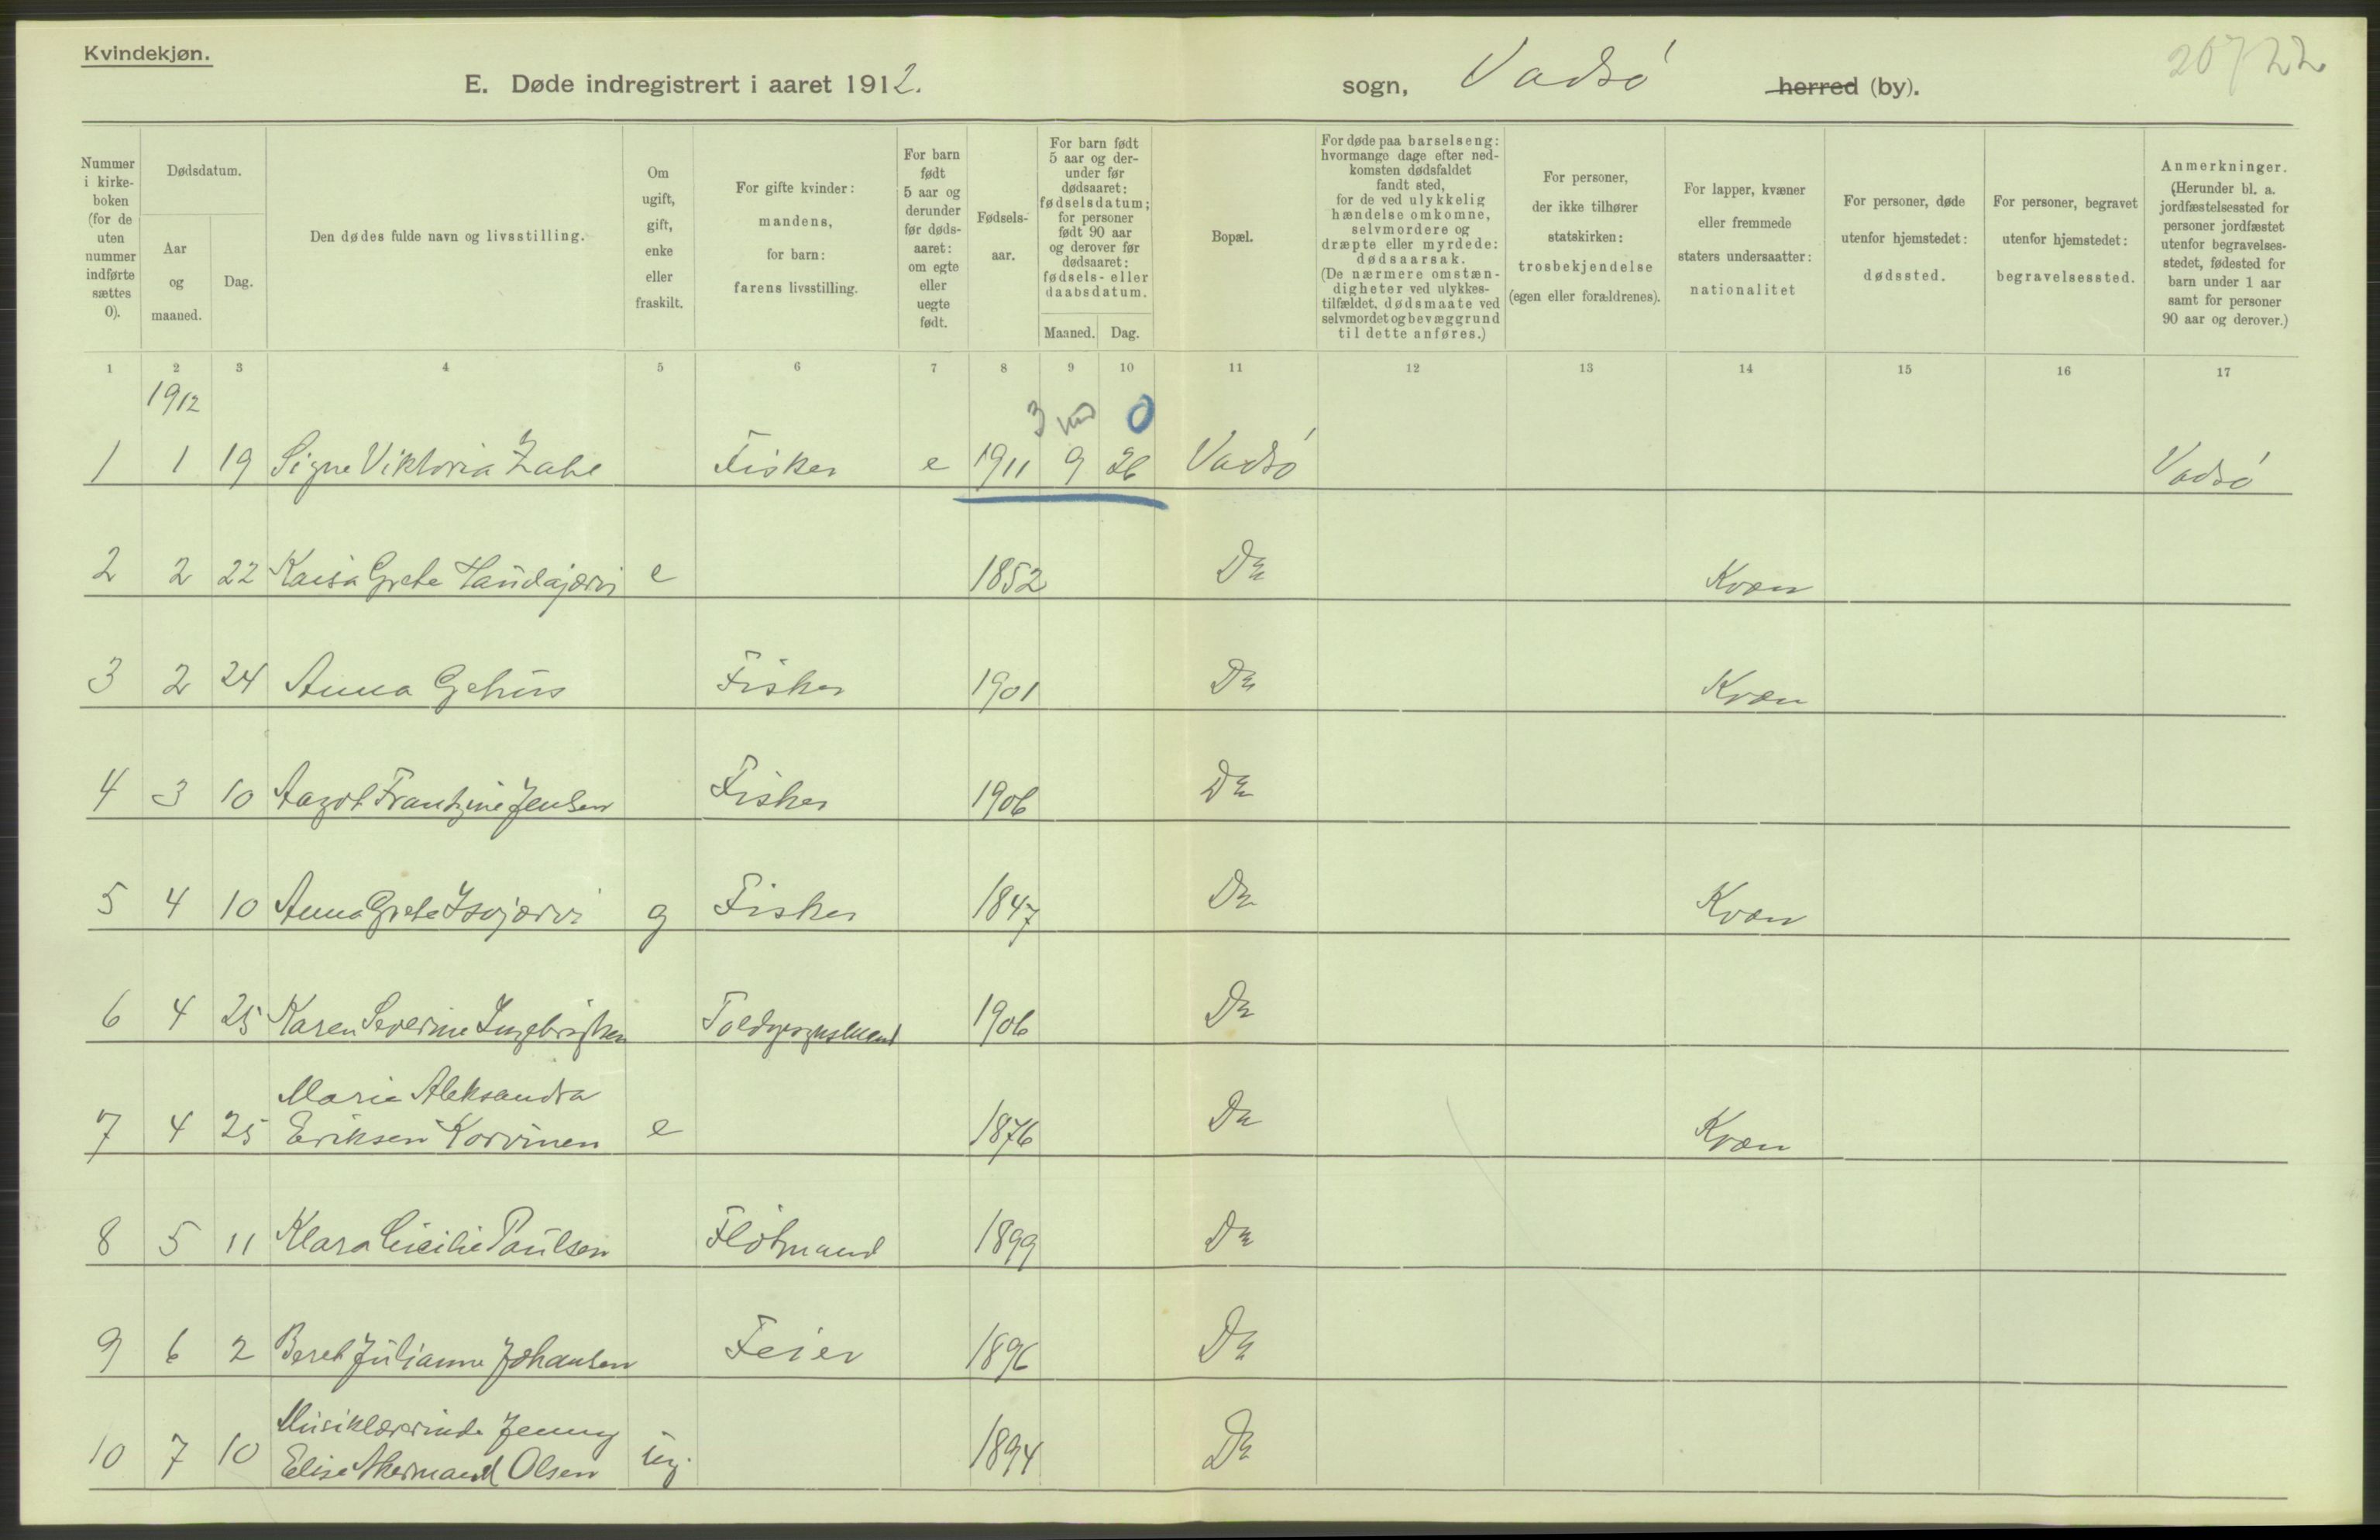 Kvindekjøn.
E. Døde indregistrert i aaret 1912. sogn, Vadsø herred (by). 20722
Nummer i kirkeboken (for de uten nummer indførte sættes 0).
Dødsdatum.
Aar og maaned.
Dag.
Den dødes fulde navn og livsstilling.
Om ugift, gift, enke eller fraskilt.
For gifte kvinder: mandens, for barn: farens livsstilling.
For barn født 5 aar og derunder før dødsaaret: om egte eller uegte født.
Fødselsaar.
For barn født 5 aar og derunder før dødsaaret: fødselsdatum; for personer født 90 aar og derover før dødsaaret: fødsels- eller daabsdatum.
Maaned. Dag.
Bopæl.
For døde paa barselseng: hvormange dage efter nedkomsten dødsfaldet fandt sted, for de ved ulykkelig hændelse omkomne, selvmordere og dræpte eller myrdede: dødsaarsak. (De nærmere omstændigheter ved ulykkestilfældet, dødsmaate ved selvmordet og bevæggrund til dette anføres.)
For personer, der ikke tilhører statskirken: trosbekjendelse (egen eller forældrenes).
For lapper, kvæner eller fremmede staters undersaatter: nationalitet
For personer, døde utenfor hjemstedet: dødssted.
For personer, begravet utenfor hjemstedet: begravelsessted.
Anmerkninger. (Herunder bl. a. jordfæstelsessted for personer jordfæstet utenfor begravelsesstedet, fødested for barn under 1 aar samt for personer 90 aar og derover.)
1 2 3 4 5 6 7 8 9 10 11 12 13 14 15 16 17
1912
3 md 0
1 1 19 Signe Viktoria Zahl Fisker e 1911 9 26 Vadsø Vadsø
2 2 22 Kaisa Grete Haudajærvi e 1852 Do Kvæn
3 2 24 Anna Gehus Fisker 1901 Do Kvæn
4 3 10 Aagot Frantzine Jensen Fisker 1906 Do
5 4 10 Anna Grete Isojærvi g Fisker 1847 Do Kvæn
6 4 25 Karen Severine Ingebrigtsen 1906 Do
Marie Aleksandra
7 4 25 Eriksen Korvinen e 1876 Do Kvæn
8 5 11 Klara Cicilie Paulsen Flotmand 1899 Do
9 6 2 Beret Julianne Johansen Feier 1896 Do
Musiklærerinde Jenny
10 7 10 Elise Akermand Olsen ug. 1894 Do